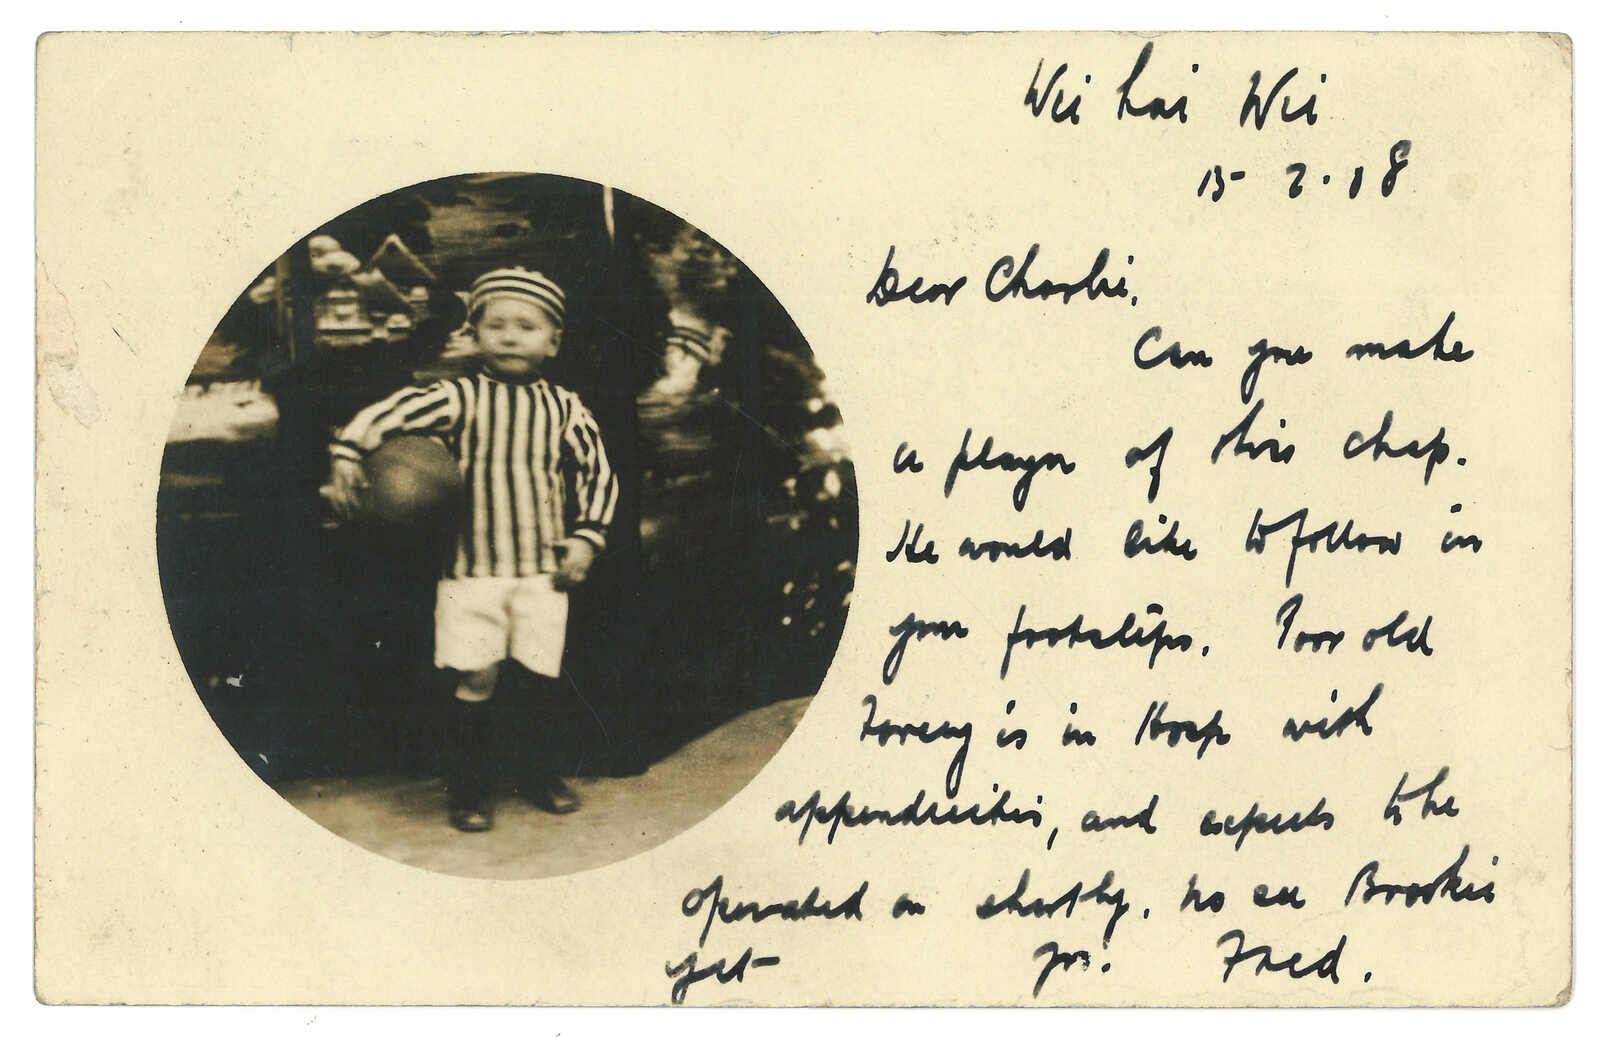 Wei hai Wei
15-2.08
Dear Charlie,
Can you make
a player of this chap.
He would like to follow in
your footsteps. Poor old
is in Hosp with
appendicitis, and expects to be
operated on shortly. no see Brookie
yet yrs. Fred.